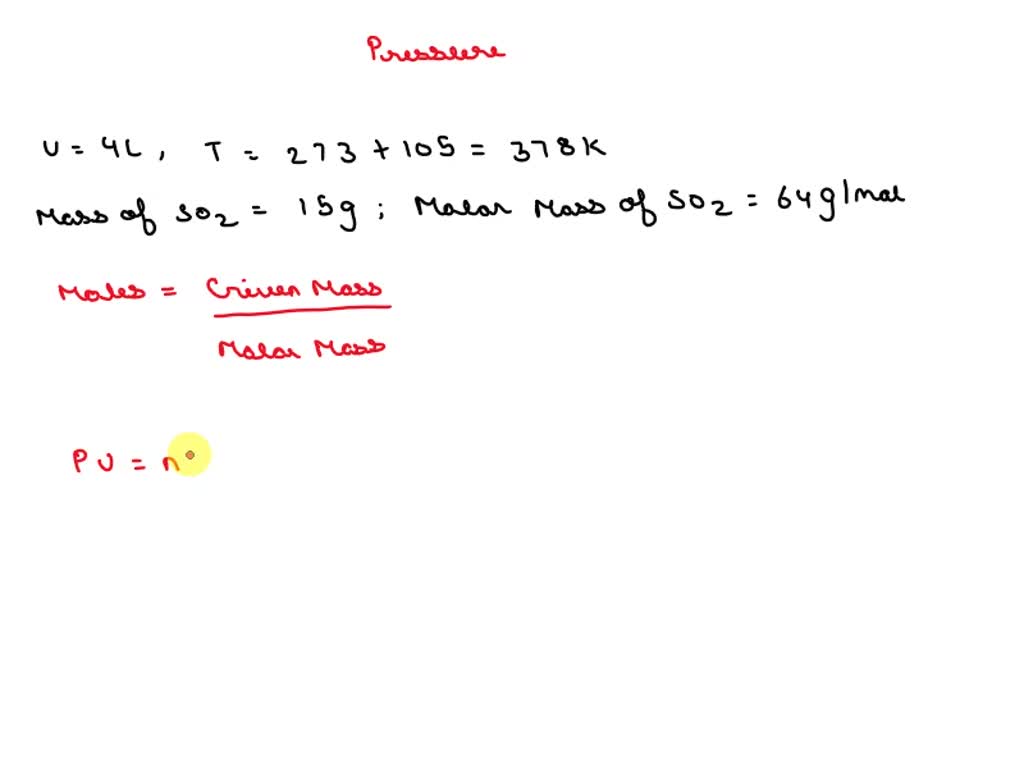 Pressure
V = 4L, T = 273 + 105 = 378K
Mass of SO2 = 15g ; Molar Mass of SO2 = 64g/mol
Moles = Given Mass
Molar Mass
PV = n